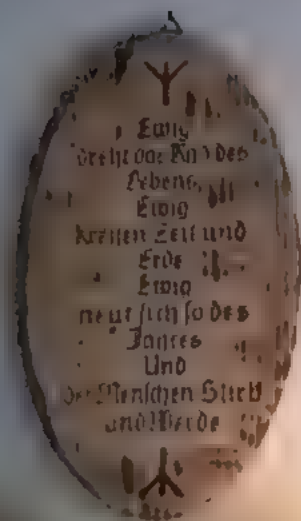 ᛉ
Ewig
dreht das Rad des
Lebens,
Ewig
kreisen Zeit und
Erde
Ewig
neut sich so des
Jahres
Und
der Menschen Stirb
und Werde
ᛦ